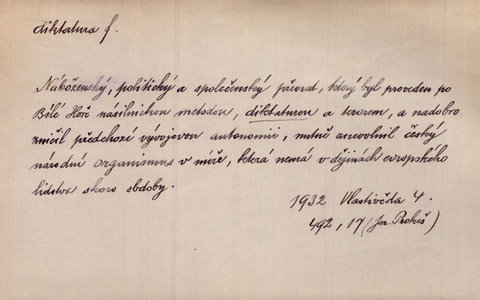 diktatura f.
Náboženský, politický a společenský převrat, který byl proveden po
Bílé Hoře násilnickou metodou, diktaturou a terorem, a nadobro
zničil předchozí vývojovou autonomii, nutně znevolnil český
národní organismus v míře, která nemá v dějinách evropského
lidstva skoro obdoby.
1932 Vlastivěda 4.
492, 17 (Jar. Prokeš)